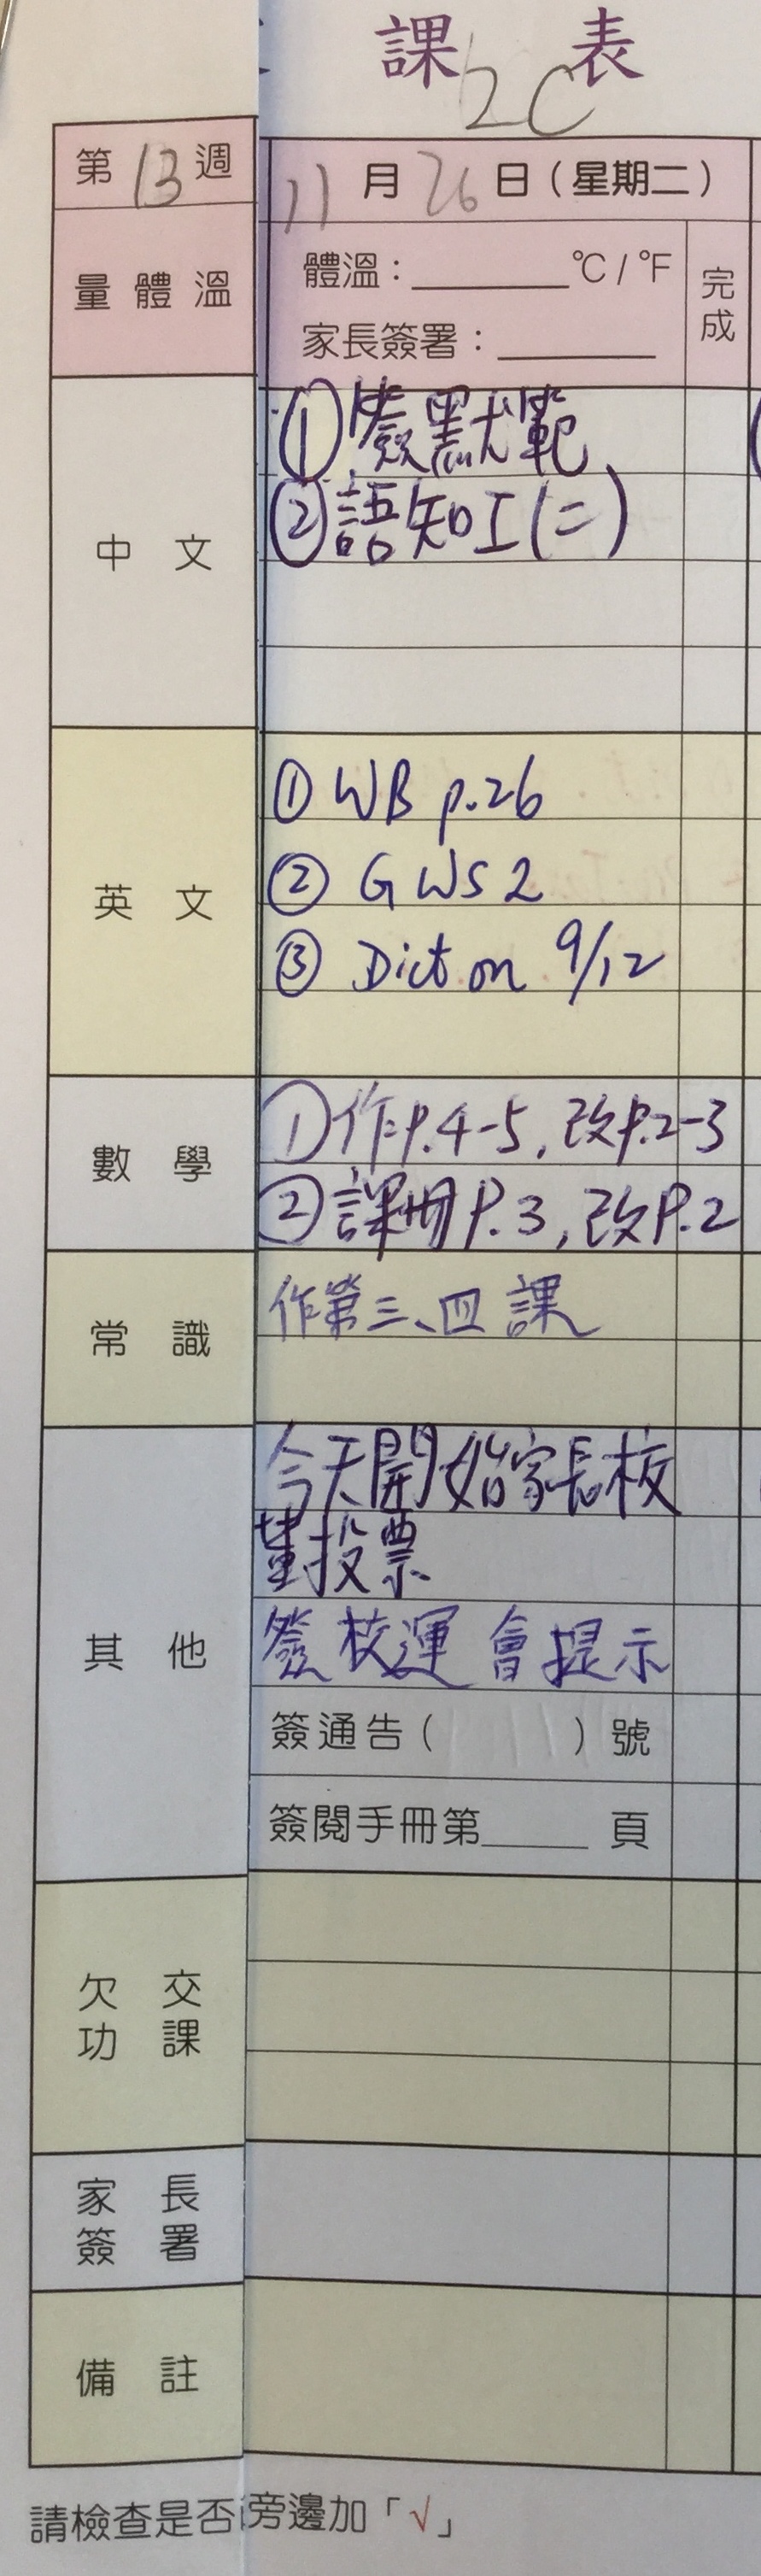 課表
2C
第13週
11月26日（星期二）
量體溫
體溫：______°C / °F
家長簽署：______
完成
中文
①簽默範
②語知工(二)
英文
① WB p.26
② GWS 2
③ Dict on 9/12
數學
①作P.4-5, 改P.2-3
②課冊P.3, 改P.2
常識
作第三、四課
其他
今天開始家長校
董投票
發校運會提示
簽通告（ ）號
簽閱手冊第____頁
欠交
功課
家長
簽署
備註
請檢查是否
旁邊加「√」